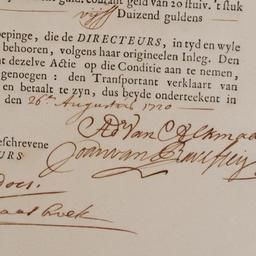 guld. courant geld van 20 stuiv. 't stuk
vyff Duizend guldens
epinge, die de DIRECTEURS, in tyd en wyle
behooren, volgens haar origineelen Inleg. Den
nt dezelve Actie op die Conditie aan te nemen,
genoegen: den Transportant verklaart van
en betaalt te zyn, dus beyde onderteekent in
den 26en Augustus 1720
Ad Van
eschrevene Joan van
URS